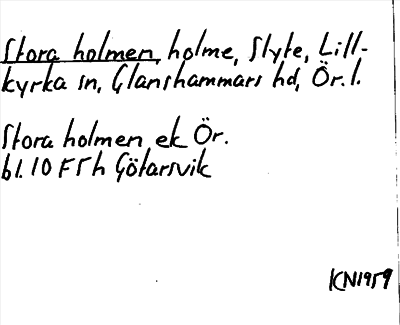 Stora holmen, holme, Slyte, Lill-
kyrka sn, Glanshammars hd, Ör. l.
Stora holmen ek Ör.
bl. 10 F5h Götarsvik
KN1959